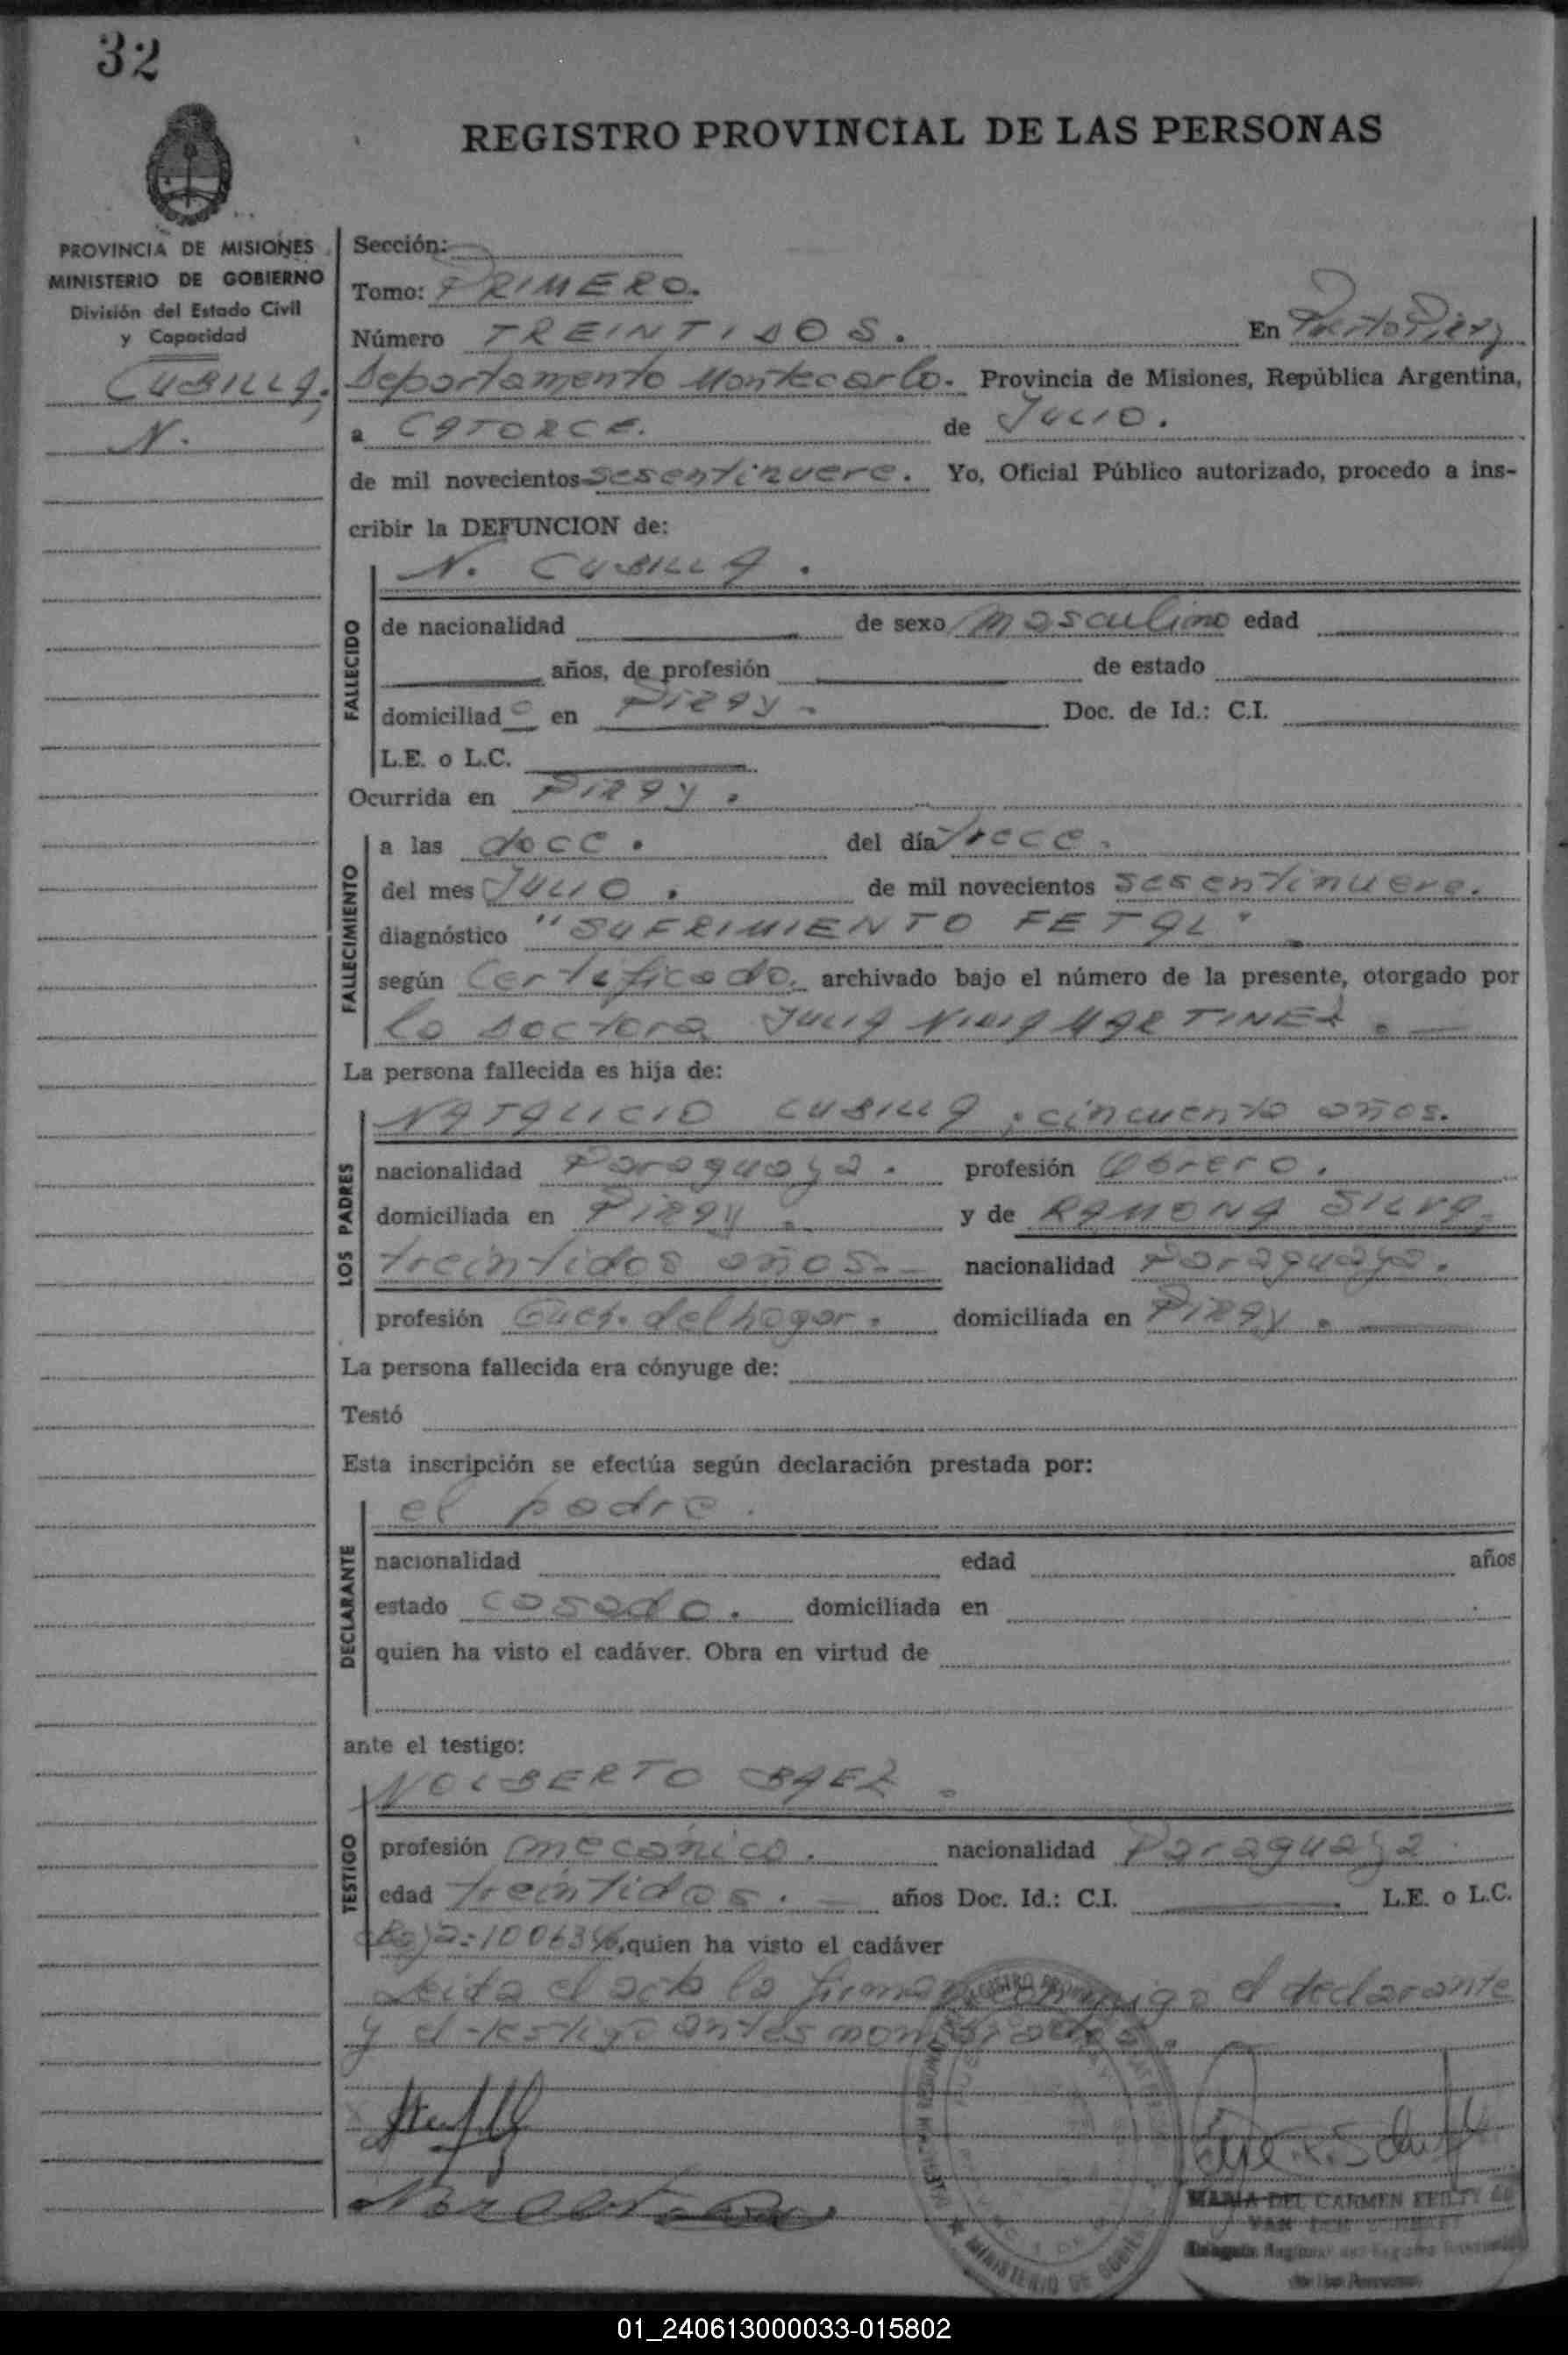 32
REGISTRO PROVINCIAL DE LAS PERSONAS
PROVINCIA DE MISIONES
MINISTERIO DE GOBIERNO
División del Estado Civil
y Capacidad
CUBILLA,
N.
Sección:
Tomo: PRIMERO.
Número TREINTIDOS. En Puerto Piray
Departamento Montecarlo. Provincia de Misiones, República Argentina,
a CATORCE. de JULIO.
de mil novecientos sesentinueve. Yo, Oficial Público autorizado, procedo a ins-
cribir la DEFUNCION de:
N. CUBILLA.
FALLECIDO
de nacionalidad de sexo masculino edad
años, de profesión de estado
domiciliado en PIRAY. Doc. de Id.: C.I.
L.E. o L.C.
Ocurrida en PIRAY.
FALLECIMIENTO
a las doce. del día trece.
del mes JULIO. de mil novecientos sesentinueve.
diagnóstico "SUFRIMIENTO FETAL".
según Certificado. archivado bajo el número de la presente, otorgado por
la doctora JULIA MARTINEZ.
La persona fallecida es hija de:
LOS PADRES
NATALICIO CUBILLA, cincuenta años.
nacionalidad Paraguaya. profesión Obrero.
domiciliada en PIRAY. y de RAMONA SILVA,
treintidos años. nacionalidad Paraguaya.
profesión Queh. del hogar. domiciliada en PIRAY.
La persona fallecida era cónyuge de:
Testó
Esta inscripción se efectúa según declaración prestada por:
DECLARANTE
el padre.
nacionalidad edad años
estado casado. domiciliada en
quien ha visto el cadáver. Obra en virtud de
ante el testigo:
TESTIGO
NOLBERTO BAEZ.
profesión mecánico. nacionalidad Paraguaya
edad treintidos. años Doc. Id.: C.I. L.E. o L.C.
quien ha visto el cadáver
Leida el acta la firman conmigo el declarante
y el testigo antes nombrados.
MARIA DEL CARMEN
MINISTERIO DE GOBIERNO
01_240613000033-015802